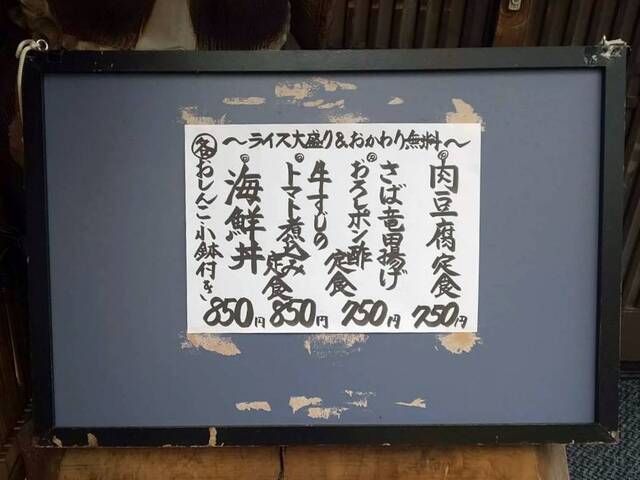 〜ライス大盛り&おかわり無料〜
肉豆腐定食
750円
さば竜田揚げ
おろしポン酢
定食
750円
牛すじの
トマト煮込み
定食
850円
海鮮丼
850円
各おしんこ・小鉢付き